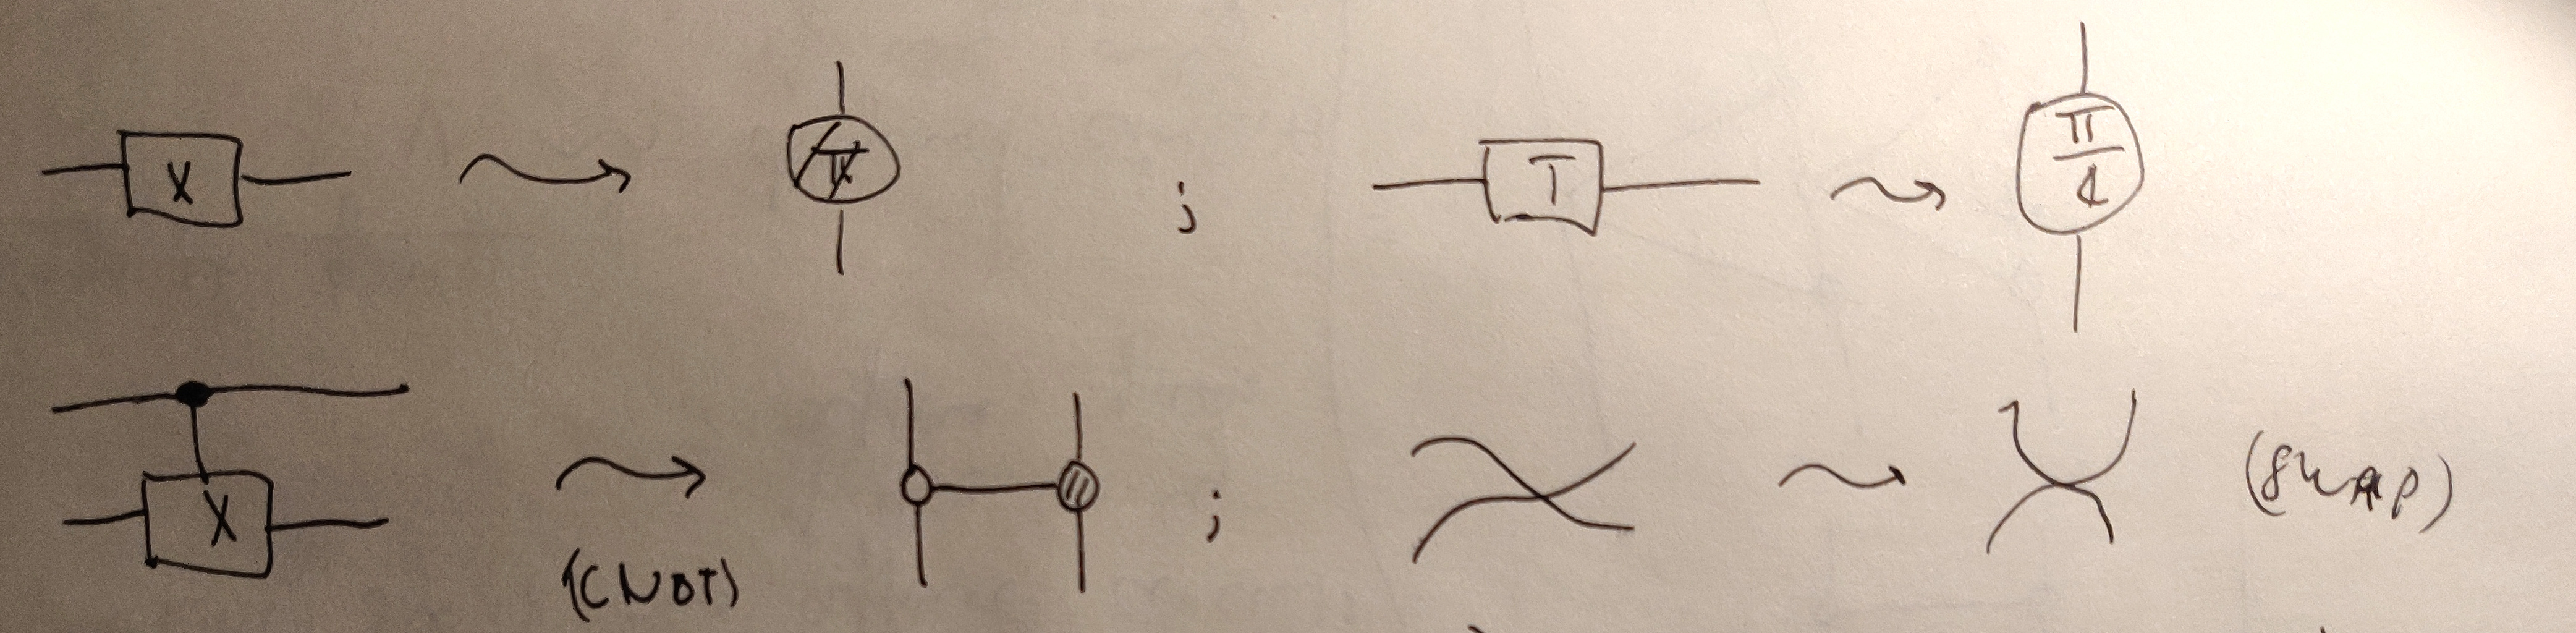 X π ; T π/4
X (CNOT) ; (SWAP)